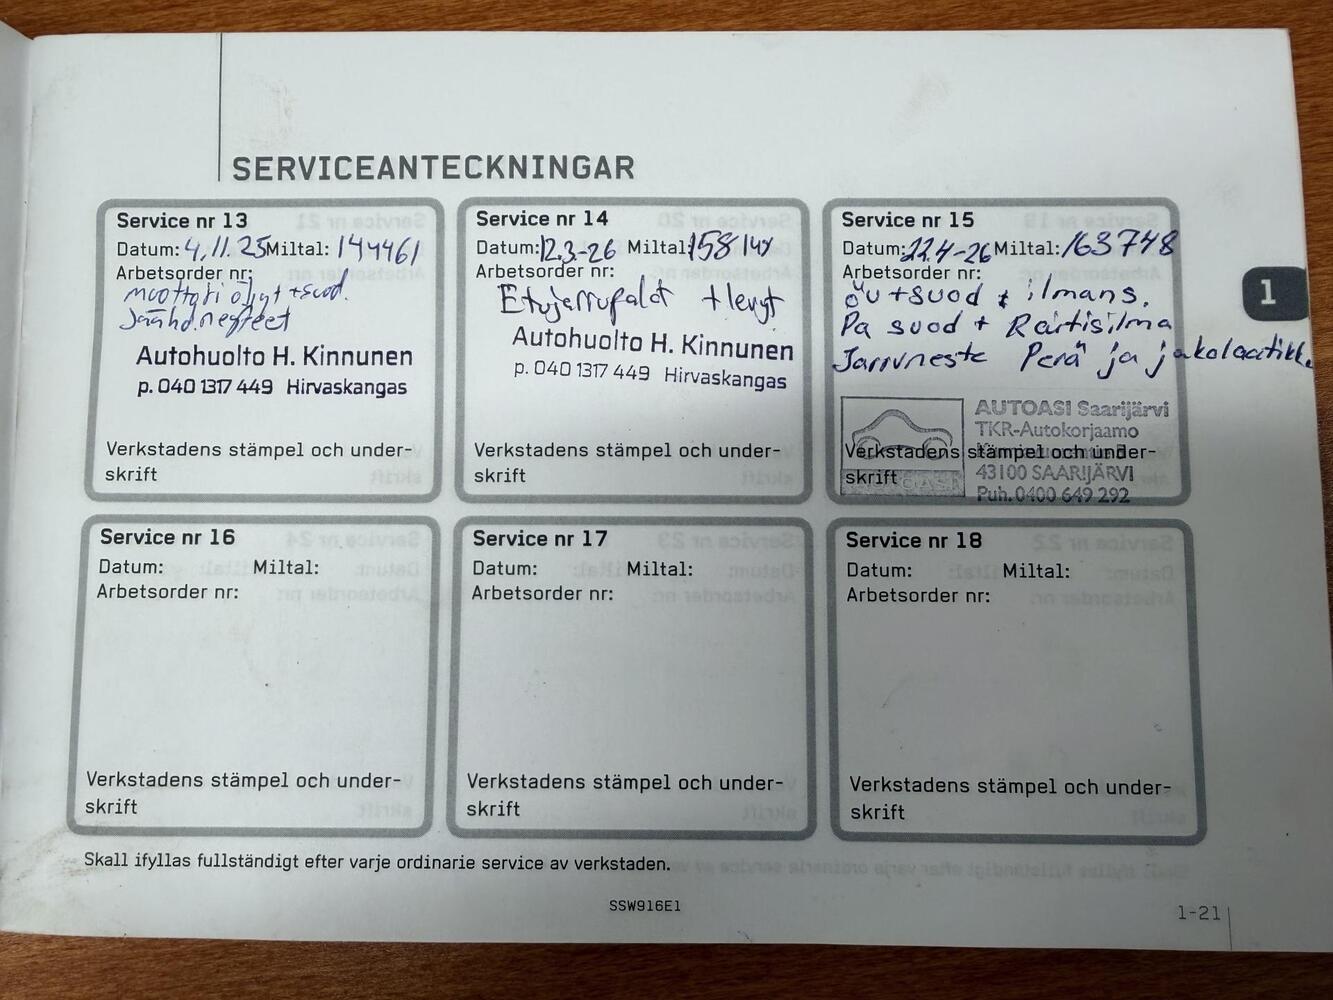 SERVICEANTECKNINGAR
Service nr 13
Datum: 4,11.25 Miltal: 144461
Arbetsorder nr:
moottori öljyt + suod.
Jäähd.nesteet
Autohuolto H. Kinnunen
p. 040 1317 449 Hirvaskangas
Verkstadens stämpel och under-
skrift
Service nr 14
Datum: 12.3-26 Miltal: 158144
Arbetsorder nr:
Etujarrupalat + levyt
Autohuolto H. Kinnunen
p. 040 1317 449 Hirvaskangas
Verkstadens stämpel och under-
skrift
Service nr 15
Datum: 22.4-26 Miltal: 163748
Arbetsorder nr:
öv + suod + ilmans.
Pa suod + Raitisilma
Jarruneste Perä ja jakolaatikko
AUTOASI Saarijärvi
TKR-Autokorjaamo
Verkstadens stämpel och under-
skrift
43100 SAARIJÄRVI
Puh. 0400 649 292
1
Service nr 16
Datum: Miltal:
Arbetsorder nr:
Verkstadens stämpel och under-
skrift
Service nr 17
Datum: Miltal:
Arbetsorder nr:
Verkstadens stämpel och under-
skrift
Service nr 18
Datum: Miltal:
Arbetsorder nr:
Verkstadens stämpel och under-
skrift
Skall ifyllas fullständigt efter varje ordinarie service av verkstaden.
SSW916E1
1-21